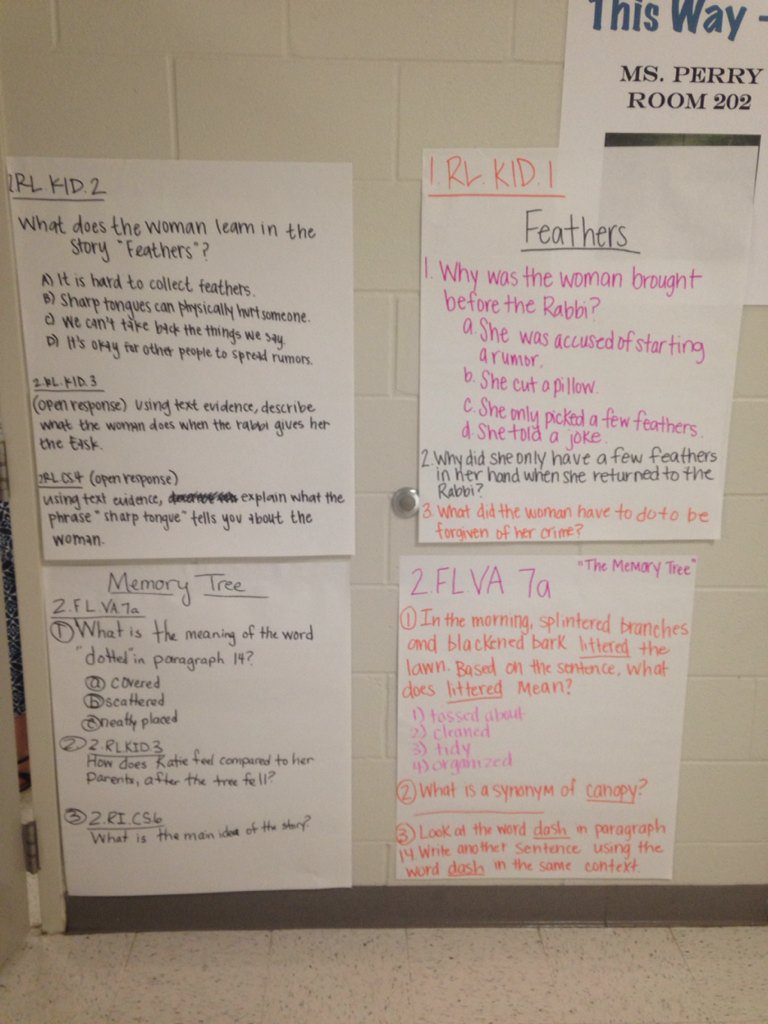 This Way -
MS. PERRY
ROOM 202
2RL.KID.2
What does the woman learn in the
story "Feathers"?
A) It is hard to collect feathers.
B) Sharp tongues can physically hurt someone.
C) We can't take back the things we say.
D) It's okay for other people to spread rumors.
2.RL.KID.3
(open response) Using text evidence, describe
what the woman does when the rabbi gives her
the task.
2RL.CS4 (open response)
using text evidence, explain what the
phrase "sharp tongue" tells you about the
woman.
1.RL.KID.1
Feathers
1. Why was the woman brought
before the Rabbi?
a. She was accused of starting
a rumor.
b. She cut a pillow.
c. She only picked a few feathers.
d. She told a joke.
2. Why did she only have a few feathers
in her hand when she returned to the
Rabbi?
3. What did the woman have to do to be
forgiven of her crime?
Memory Tree
2.FL.VA.7a
① What is the meaning of the word
"dotted" in paragraph 14?
ⓐ covered
ⓑ scattered
ⓒ neatly placed
② 2.RLKID.3
How does Katie feel compared to her
Parents, after the tree fell?
③ 2.RI.CS6
What is the main idea of the story?
2.FLVA 7a
"The Memory Tree"
① In the morning, splintered branches
and blackened bark littered the
lawn. Based on the sentence, what
does littered mean?
1) tossed about
2) cleaned
3) tidy
4) organized
② What is a synonym of canopy?
③ Look at the word dash in paragraph
14. Write another sentence using the
word dash in the same context.